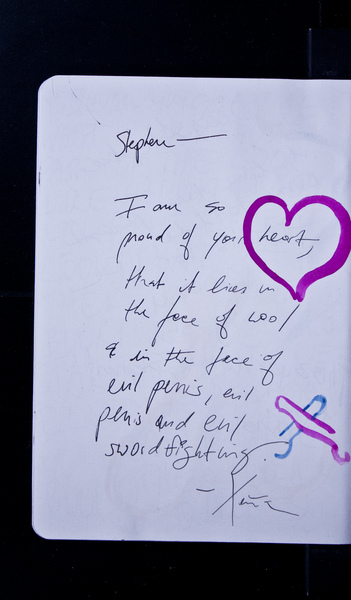 Stephen —
I am so
proud of your heart,
that it lies in
the face of wool
& in the face of
evil penis, evil
penis and evil
swordfighting.
- Xenia